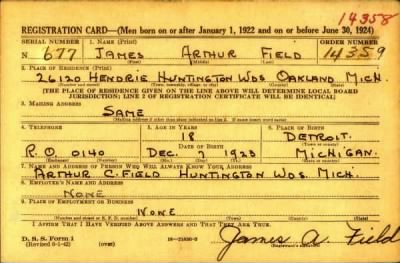 14358
REGISTRATION CARD—(Men born on or after January 1, 1922 and on or before June 30, 1924)
SERIAL NUMBER 1. NAME (Print) ORDER NUMBER
N 677 JAMES ARTHUR FIELD 14359
(First) (Middle) (Last)
2. PLACE OF RESIDENCE (Print)
26120 HENDRIE HUNTINGTON WDS OAKLAND MICH.
(Number and street) (Town, township, village, or city) (County) (State)
[THE PLACE OF RESIDENCE GIVEN ON THE LINE ABOVE WILL DETERMINE LOCAL BOARD
JURISDICTION; LINE 2 OF REGISTRATION CERTIFICATE WILL BE IDENTICAL]
3. MAILING ADDRESS
SAME
(Mailing address if other than place indicated on line 2. If same insert word same)
4. TELEPHONE 5. AGE IN YEARS 6. PLACE OF BIRTH
18 DETROIT.
DATE OF BIRTH (Town or county)
R.O. 0140 DEC. 7 1923 MICHIGAN.
(Exchange) (Number) (Mo.) (Day) (Yr.) (State or country)
7. NAME AND ADDRESS OF PERSON WHO WILL ALWAYS KNOW YOUR ADDRESS
ARTHUR C. FIELD HUNTINGTON WDS. MICH.
8. EMPLOYER'S NAME AND ADDRESS
NONE
9. PLACE OF EMPLOYMENT OR BUSINESS
NONE
(Number and street or R. F. D. number) (Town) (County) (State)
I AFFIRM THAT I HAVE VERIFIED ABOVE ANSWERS AND THAT THEY ARE TRUE.
D. S. S. Form 1
(Revised 6-1-42) (over) James A. Field
(Registrant's signature)